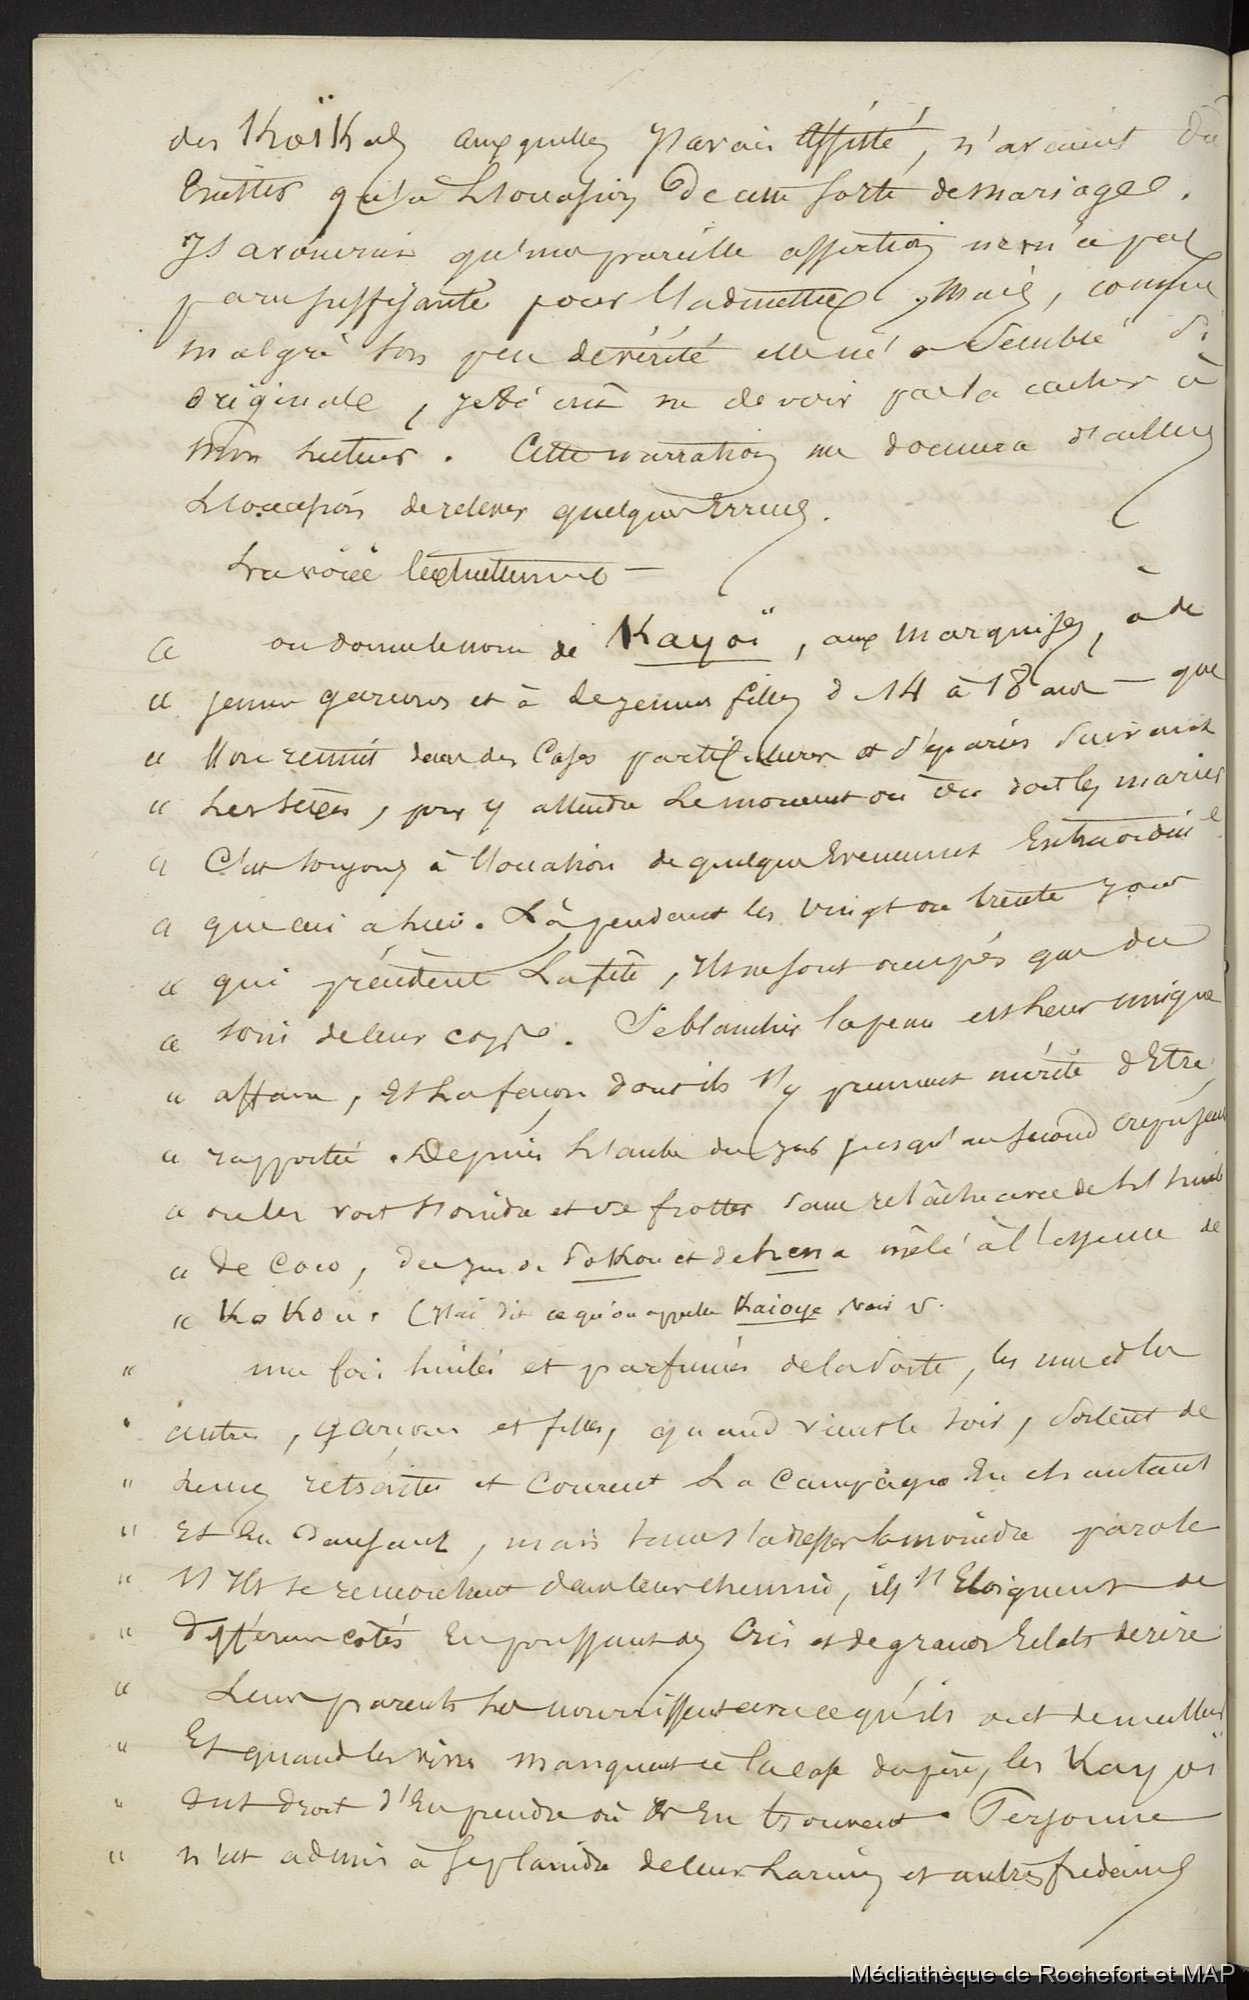 des Koïkas auxquelles j'avais assisté, n'avaient dû
Exister qu'à L'ocasion De cette sorte de mariages.
Js avouerai qu'une pareille assertion ne m'a pas
paru suffisante pour l'admettre, Mais, comme
malgré son peu de vérité elle m'a Semblé si
originale, je crû ne devoir pas la cacher à
Mon lecteur. Cette narration me donnera d'ailleurs
L'occasion de relever quelques Erreurs.
La voici textuellement —
" on donne le nom de Kayoï, aux marquises, à de
" jeunes garçons et à de jeunes filles de 14 à 18 ans — que
" l'on réunit dans des Cases particulières et séparées suivant
" les sexes, pour y attendre Le moment où on doit les marier
" C'est toujours à l'ocasion de quelque Evenement Extraordin.e
" que ceci a lieu. Là pendant les vingt ou trente jours
" qui précèdent La fête, Ils ne sont occupés que du
" soin de leur corps. Se blanchir la peau est Leur unique
" affaire, Et La façon dont ils s'y prennent mérite d'Etre
" rapportée. Depuis L'aube du jour jusqu'au second crépuscule
" on les voit s'oindre et se frotter sans relâche avec de l'huile
" De Coco, du jus de Pokou et de hena mêlé à l'essence de
" Kokou. (J'ai dit ce qu'on appelle Kaioye voir v.
" une fois huilés et parfumés de la sorte, les uns et les
" autres, garçons et filles, quand vient le soir, sortent de
" leurs retraites et courent La Campagne En chantant
" Et En Dansant, mais sans s'adresser la moindre parole
" S'Ils se rencontrent dans leur chemin, ils s'Eloignent de
" Différens cotés En poussant des Cris et de grands Eclats de rire
" Leurs parents Les nourrissent avec ce qu'ils ont de meilleur
" Et quand les vivres manquent à la case du père, les Kayoï
" Ont droit d'En prendre où ils En trouvent. Personne
" n'est admis à se plaindre de leurs Larcins et autres fredaines
Médiathèque de Rochefort et MAP